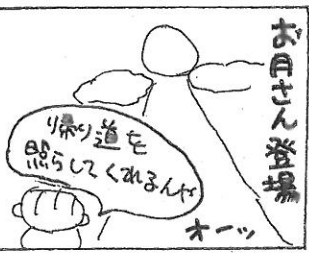 お月さん登場
帰り道を
照らしてくれるんや
オーッ